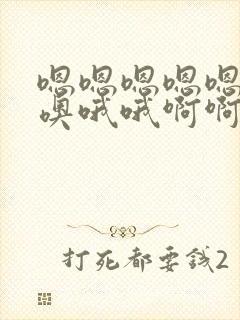 嗯嗯嗯嗯嗯
噢哦哦啊啊
打死都要钱2